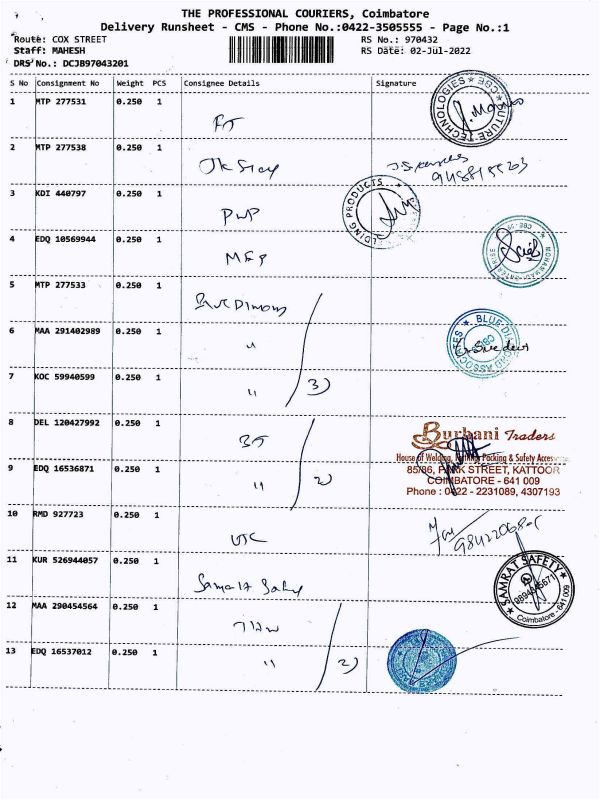 THE PROFESSIONAL COURIERS, Coimbatore
Delivery Runsheet - CMS - Phone No.:0422-3505555 - Page No.:1
Route: COX STREET
RS No.: 970432
Staff: MAHESH
RS Date: 02-Jul-2022
DRS No.: DCJB97043201
S No Consignment No Weight PCS Consignee Details Signature
1 MTP 277531 0.250 1
2 MTP 277538 0.250 1
3 KDI 440797 0.250 1 PWP
4 EDQ 10569944 0.250 1
5 MTP 277533 0.250 1
6 MAA 291402989 0.250 1 "
7 KOC 59940599 0.250 1 " 3)
8 DEL 120427992 0.250 1 BT
9 EDQ 16536871 0.250 1 " 2)
10 RMD 927723 0.250 1
11 KUR 526944057 0.250 1
12 MAA 290454564 0.250 1
13 EDQ 16537012 0.250 1 " 2)
SUTURE TECHNOLOGIES ★ CBE ★
BLUE
Burhani Traders
House of Welding, Packing & Safety
85/86, PARK STREET, KATTOOR
COIMBATORE - 641 009
Phone : 0422 - 2231089, 4307193
SAMRAT SAFETY
Coimbatore - 641 009